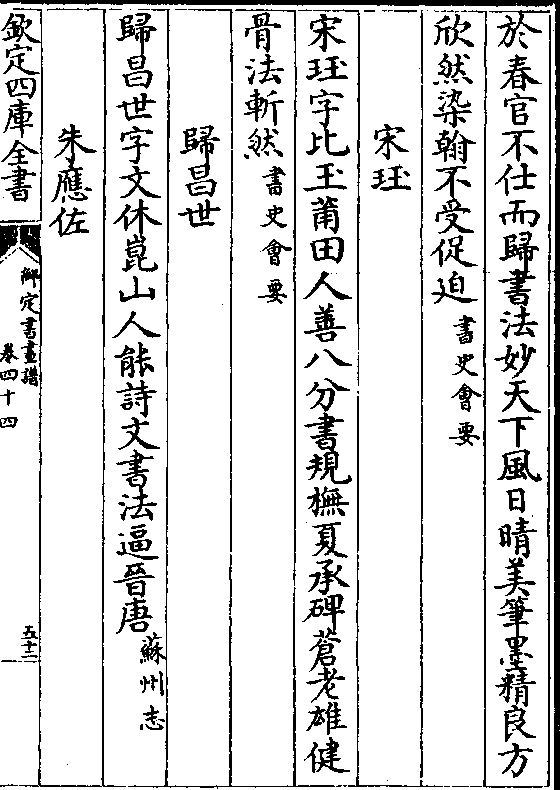 於春官不仕而歸書法妙天下風日晴美筆墨精良方
欣然染翰不受促迫書史會要
宋珏
宋珏字比玉莆田人善八分書規橅夏承碑蒼老雄健
骨法斬然書史會要
歸昌世
歸昌世字文休崑山人能詩文書法逼晉唐蘇州志
朱應佐
欽定四庫全書
御定書畫譜
卷四十四
五十二